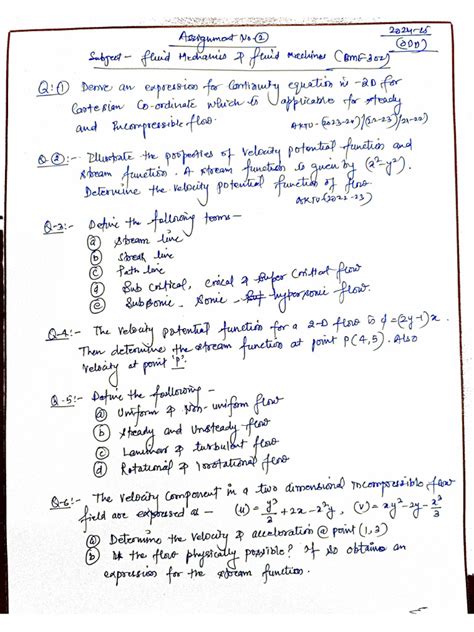 Assignment No. (2)
2024-25
(ODD)
Subject - Fluid Mechanics & Fluid Machines (BME-302)
Q:(1) Derive an expression for Continuity equation in -2D for
Cartesian Co-ordinate which is applicable for steady
and Incompressible flow.
AKTU-(2023-24)/(22-23)/(21-22)
Q(2):- Illustrate the properties of velocity potential function and
stream function. A stream function is given by (x²-y²).
Determine the velocity potential function of flow
AKTU-(2022-23)
Q-3:- Define the following terms-
(a) Stream line
(b) Streak line
(c) Path line
(d) Sub Critical, Critical & Super Critical flow
(e) Subsonic, Sonic hypersonic flow.
Q-4:- The Velocity potential function for a 2-D flow is ϕ=(2y-1)x.
Then determine the stream function at point P(4,5). Also
velocity at point 'P'.
Q-5:- Define the following -
(a) Uniform & Non-uniform flow
(b) Steady and Unsteady flow
(c) Laminar & turbulent flow
(d) Rotational & Irrotational flow
Q-6:- The Velocity Component in a two dimensional Incompressible flow
field are expressed as - (u) = y³/3 + 2x - x²y, (v) = xy² - 2y - x³/3
(a) Determine the Velocity & acceleration @ point (1,3)
(b) Is the flow physically possible? If so obtains an
expression for the stream function.